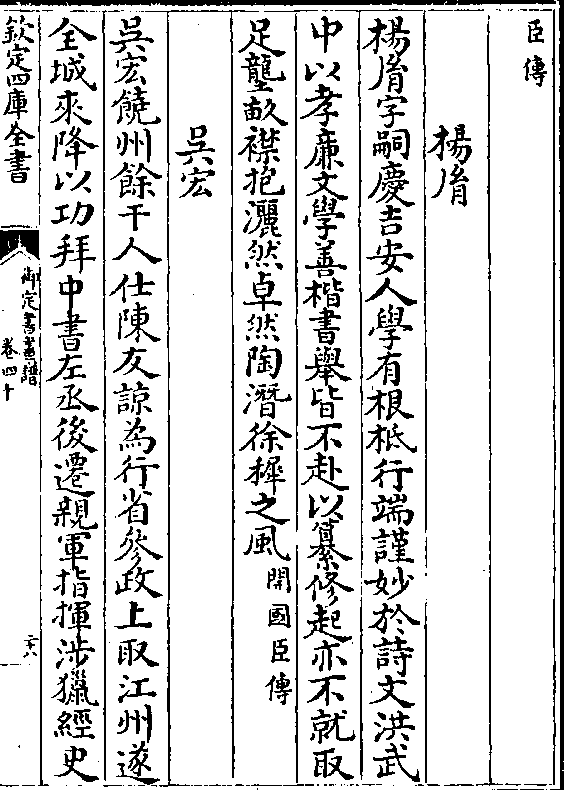 臣傳
楊胥
楊胥字嗣慶吉安人學有根柢行端謹妙於詩文洪武
中以孝廉文學善楷書舉皆不赴以纂修起亦不就取
足壟畝襟抱灑然卓然陶潛徐穉之風開國臣傳
吳宏
吳宏饒州餘干人仕陳友諒為行省參政上取江州遂
全城來降以功拜中書左丞後遷親軍指揮涉獵經史
欽定四庫全書
御定書畫譜
卷四十
二十八